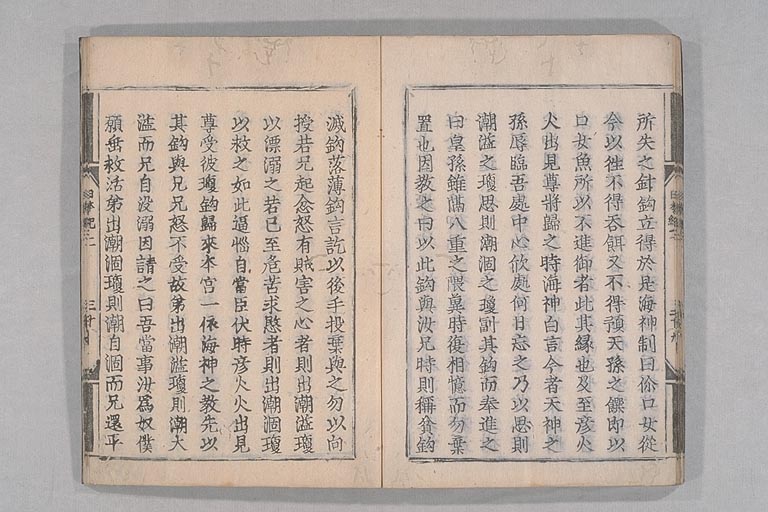 所失之針鈎立得於是海神制曰伱口女從
今以往不得吞餌又不得預天孫之饌即以
口女魚所以不進御者此其縁也及至彦火
火出見尊將歸之時海神白言今者天神之
孫辱臨吾處中心欣慶何日忘之乃以思則
潮溢之瓊思則潮涸之瓊副其鈎而奉進之
曰皇孫雖隔八重之隈冀時復相憶而勿棄
置也因教之曰以此鈎與汝兄時則稱貧鈎
滅鈎落薄鈎言訖以後手投棄與之勿以向
授若兄起忿怒有賊害之心者則出潮溢瓊
以漂溺之若已至危苦求愍者則出潮涸瓊
以救之如此逼惱自當臣伏時彦火火出見
尊受彼瓊鈎歸來本宮一依海神之教先以
其鈎與兄兄怒不受故弟出潮溢瓊則潮大
溢而兄自没溺因請之曰吾當事汝爲奴僕
願垂救活弟出潮涸瓊則潮自涸而兄還平